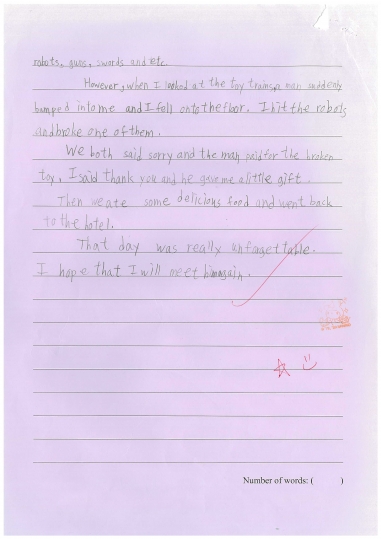 robots, guns, swords and etc.
However, when I looked at the toy trains, a man suddenly
bumped into me and I fell onto the floor. I hit the robots
and broke one of them.
We both said sorry and the man paid for the broken
toy, I said thank you and he gave me a little gift.
Then we ate some delicious food and went back
to the hotel.
That day was really unforgettable.
I hope that I will meet him again.
Number of words: ( )